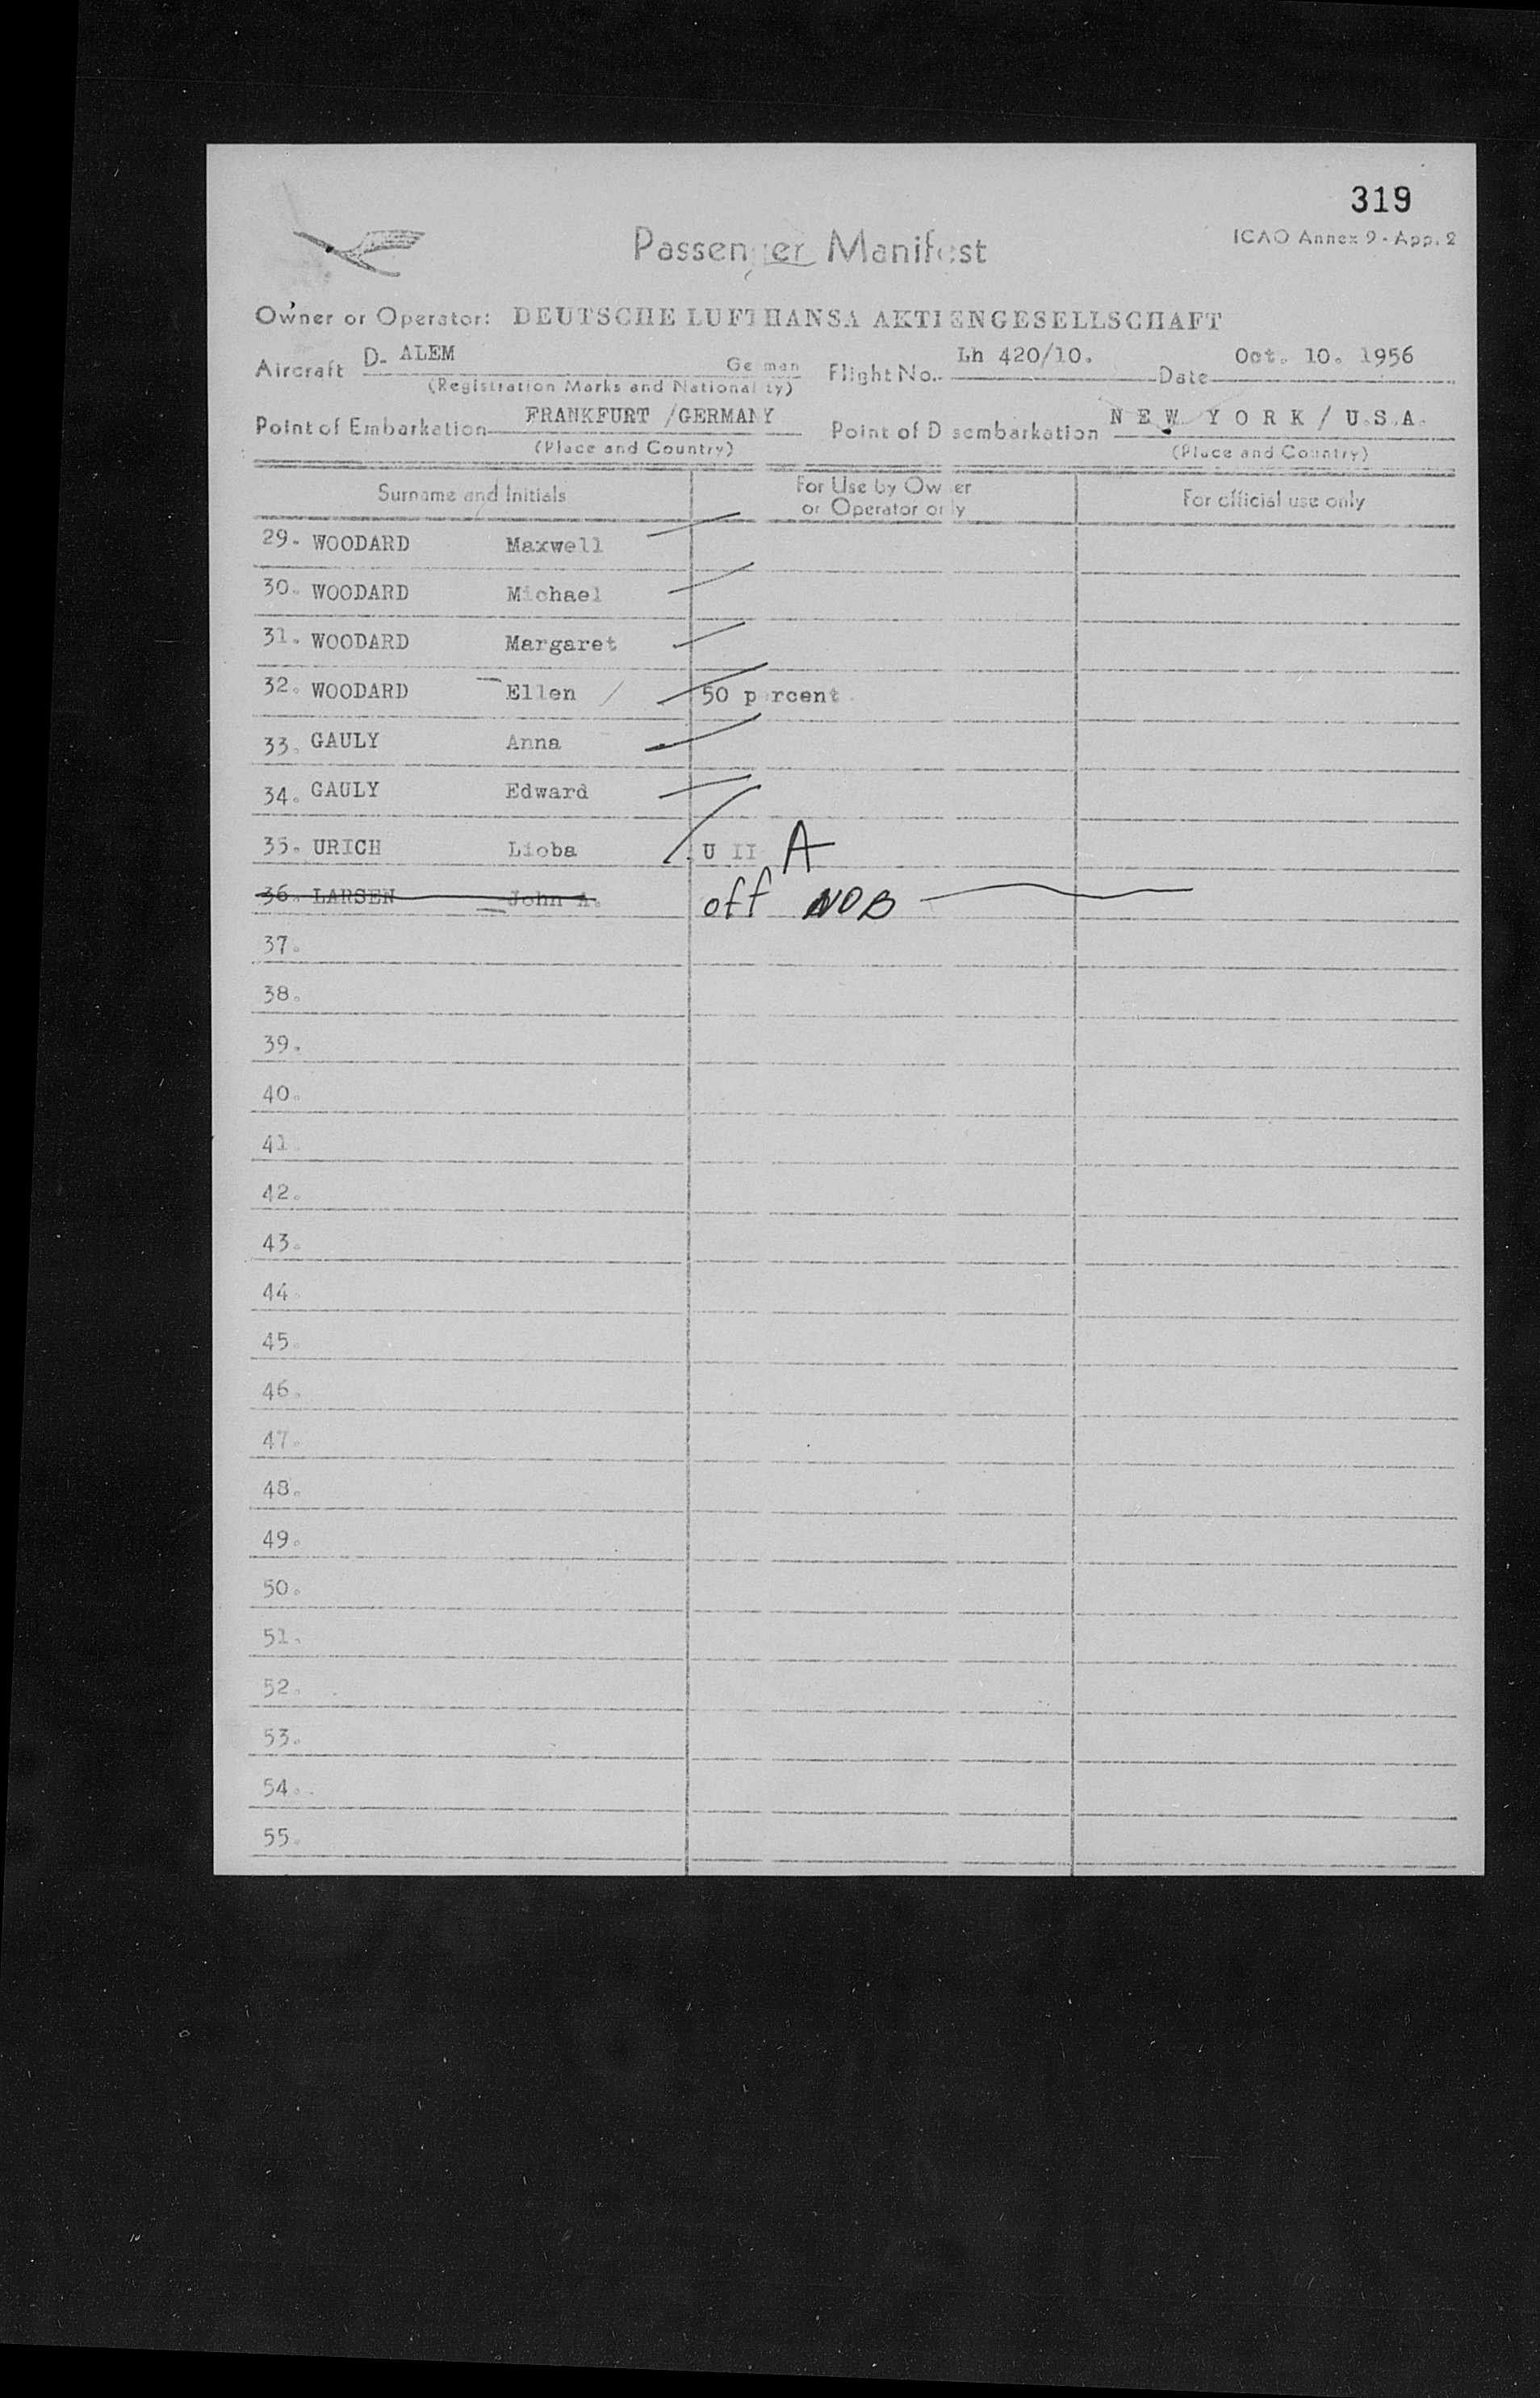 319
Passenger Manifest
ICAO Annex 9 - App. 2
Owner or Operator: DEUTSCHE LUFTHANSA AKTIENGESELLSCHAFT
Aircraft D- ALEM German Flight No. Lh 420/10. Date Oct. 10. 1956
(Registration Marks and Nationality)
Point of Embarkation FRANKFURT /GERMANY Point of Disembarkation NEW YORK / U.S.A.
(Place and Country) (Place and Country)
Surname and Initials For Use by Owner or Operator only For official use only
29. WOODARD Maxwell
30. WOODARD Michael
31. WOODARD Margaret
32. WOODARD Ellen / 50 percent
33. GAULY Anna
34. GAULY Edward
35. URICH Lioba U II A
36. LARSEN John A. off NOB
37.
38.
39.
40.
41.
42.
43.
44.
45.
46.
47.
48.
49.
50.
51.
52.
53.
54.
55.